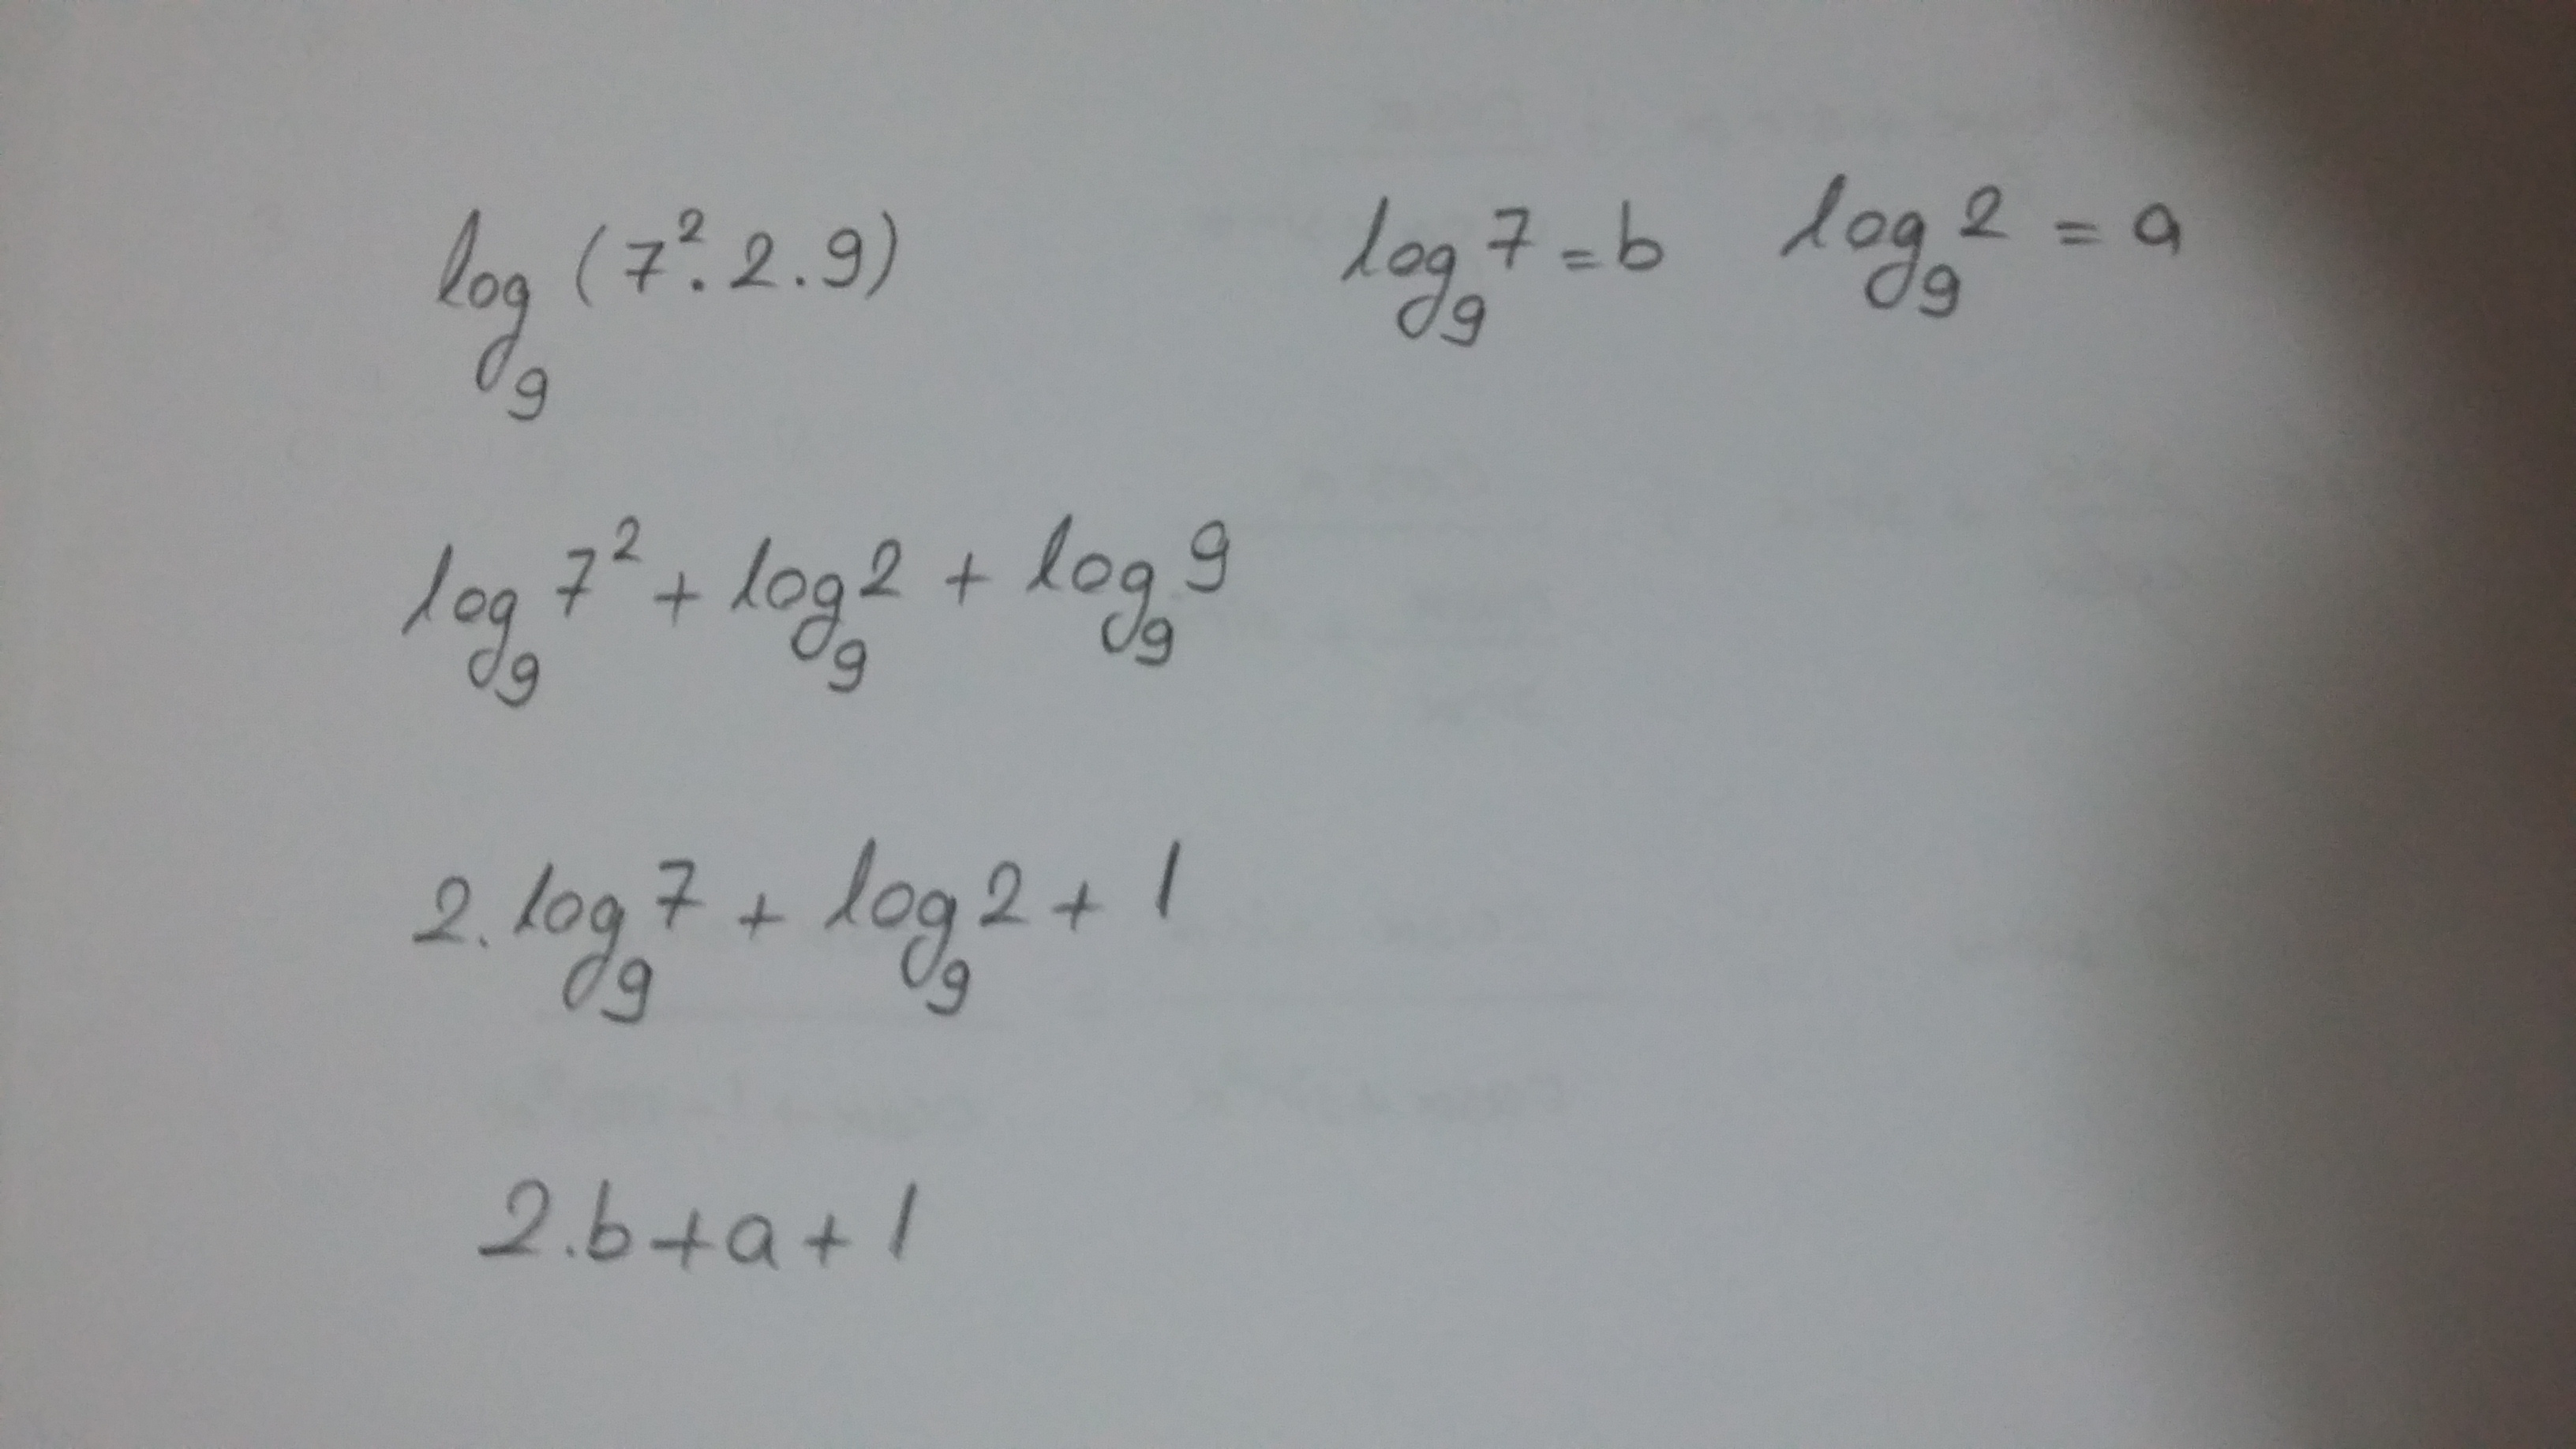 log₉(7².2.9) log₉7=b log₉2=a
log₉7²+log₉2+log₉9
2.log₉7+log₉2+1
2.b+a+1